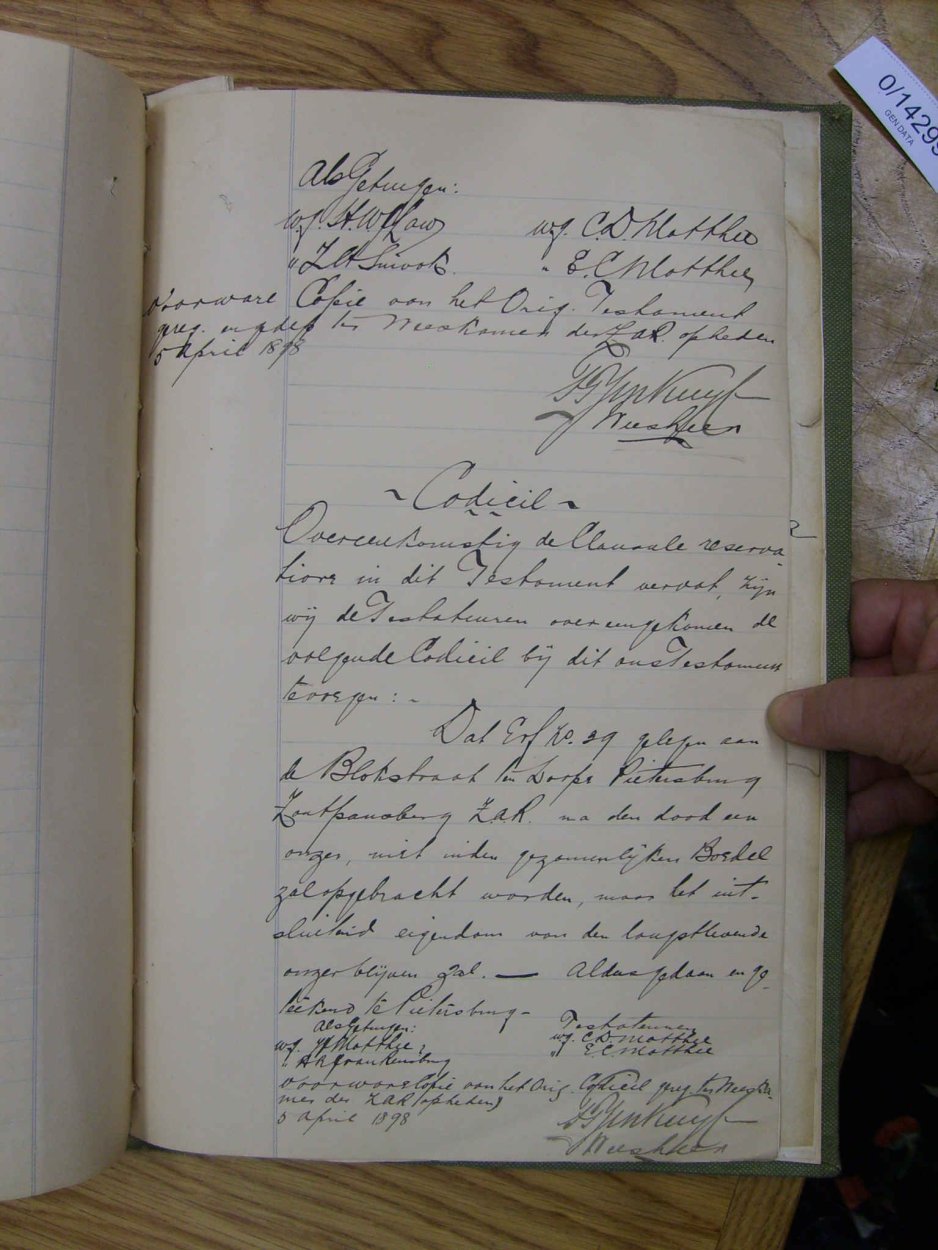 Als Getuigen:
w.g. H.W. w.g. C.D. Matthee
" " E.C. Matthee
voor ware Copie van het Orig. Testament
gereg. en gedep ter Weeskamer der Z.A.R. op heden
5 April 1898
Weesheer
~ Codicil ~
Overeenkomstig de Clausule reserva-
tioir in dit Testament vervat, zijn
wij de Testateuren overeengekomen de
volgende Codicil bij dit ons Testament
te voegen: -
Dat Erf No. 29 gelegen aan
de Blokstraat ten Dorpe Pietersburg
Zoutpansberg Z.A.R. na den dood een
onzer, niet in den gezamenlijken Boedel
zal opgebracht worden, maar het uit-
sluitend eigendom van den langstlevende
onzer blijven zal. — Aldus gedaan en ge-
teekend te Pietersburg -
Als Getuigen: Testateuren
w.g. Matthee w.g. C D Matthee
" " E C Matthee
voor ware Copie van het Orig. Codicil gereg ter Weeska-
mer der Z.A.R. op heden
5 April 1898
Weesheer
0/14299
GEN DATA